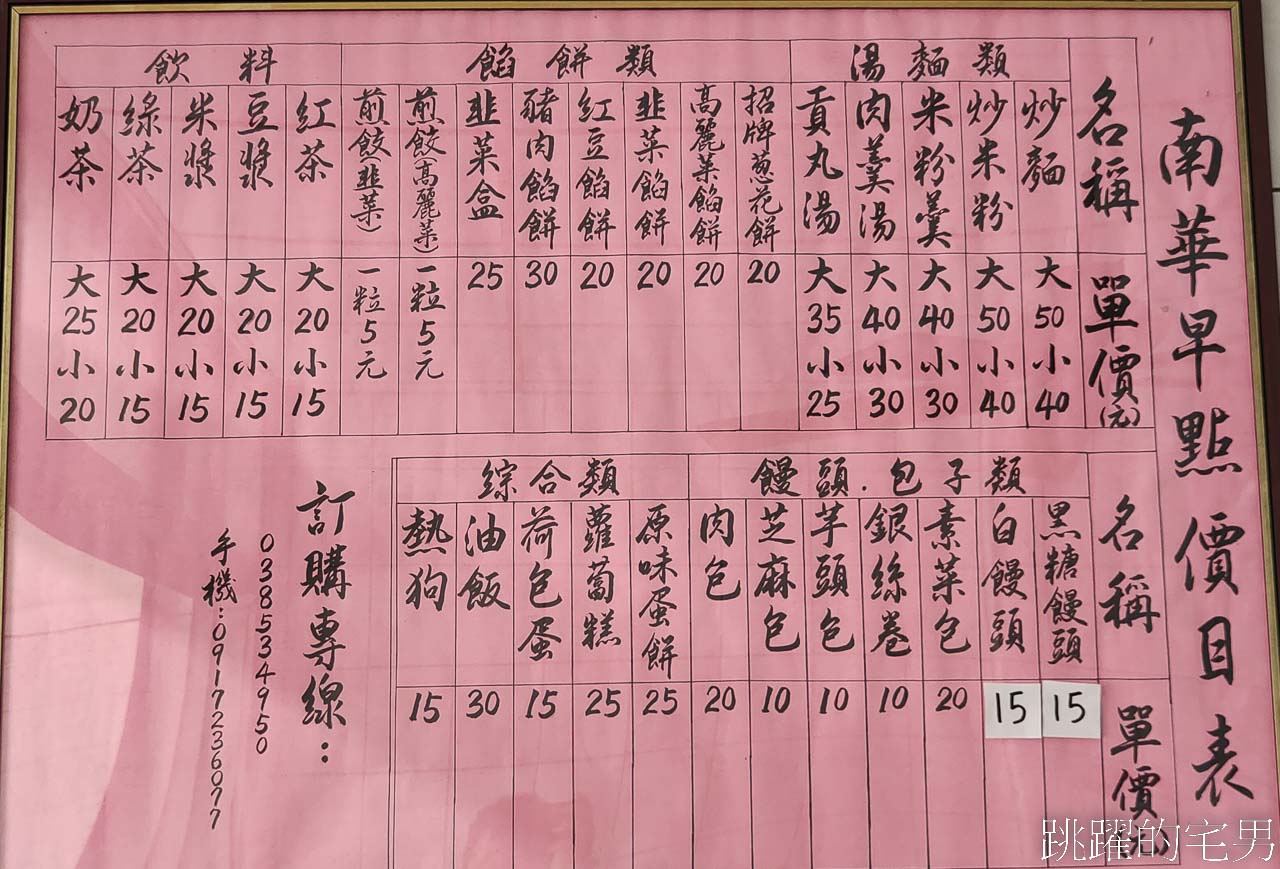 南華早點價目表
名稱
單價(元)
湯麵類
炒麵
大50小40
炒米粉
大50小40
米粉羹
大40小30
肉羹湯
大40小30
貢丸湯
大35小25
餡餅類
招牌蔥花餅
20
高麗菜餡餅
20
韭菜餡餅
20
紅豆餡餅
20
豬肉餡餅
30
韭菜盒
25
煎餃(高麗菜)
一粒5元
煎餃(韭菜)
一粒5元
飲料
紅茶
大20小15
豆漿
大20小15
米漿
大20小15
綠茶
大20小15
奶茶
大25小20
名稱
單價(元)
饅頭.包子類
黑糖饅頭
15
白饅頭
15
素菜包
20
銀絲卷
10
芋頭包
10
芝麻包
10
肉包
20
綜合類
原味蛋餅
25
蘿蔔糕
25
荷包蛋
15
油飯
30
熱狗
15
訂購專線:
038534950
手機:0917236077
跳躍的宅男